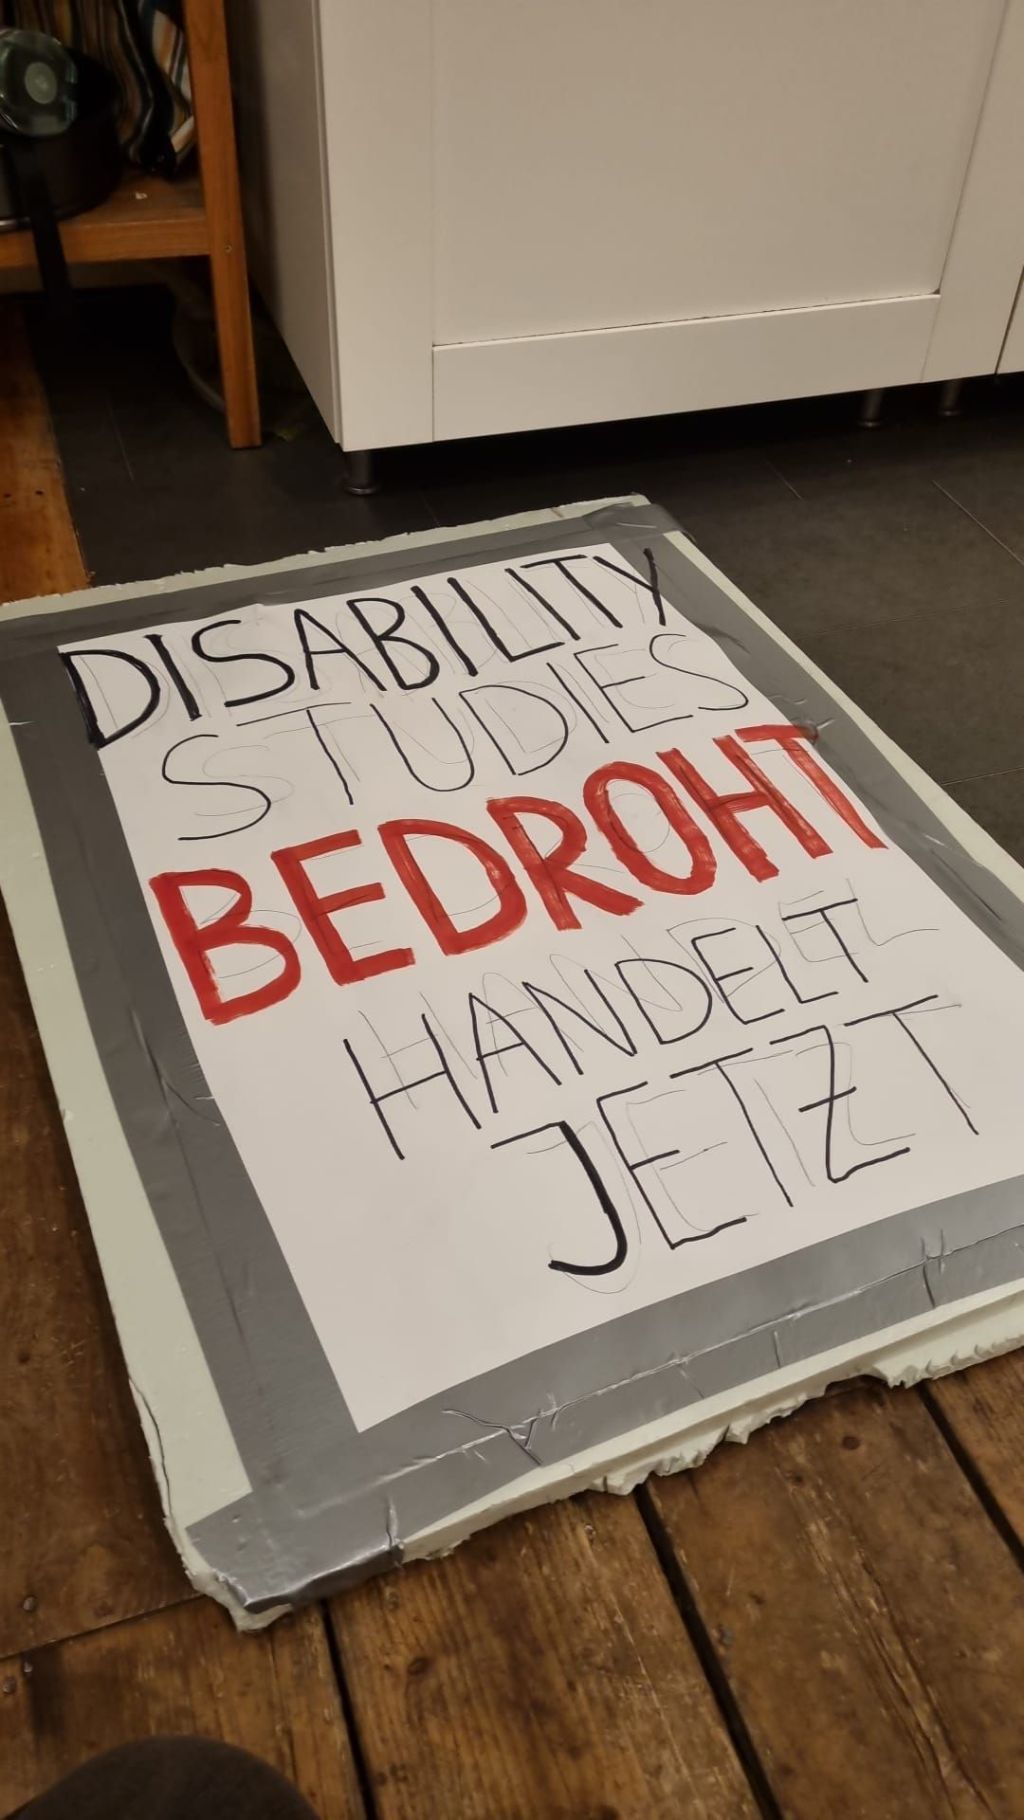 DISABILITY
STUDIES
BEDROHT
HANDELT
JETZT